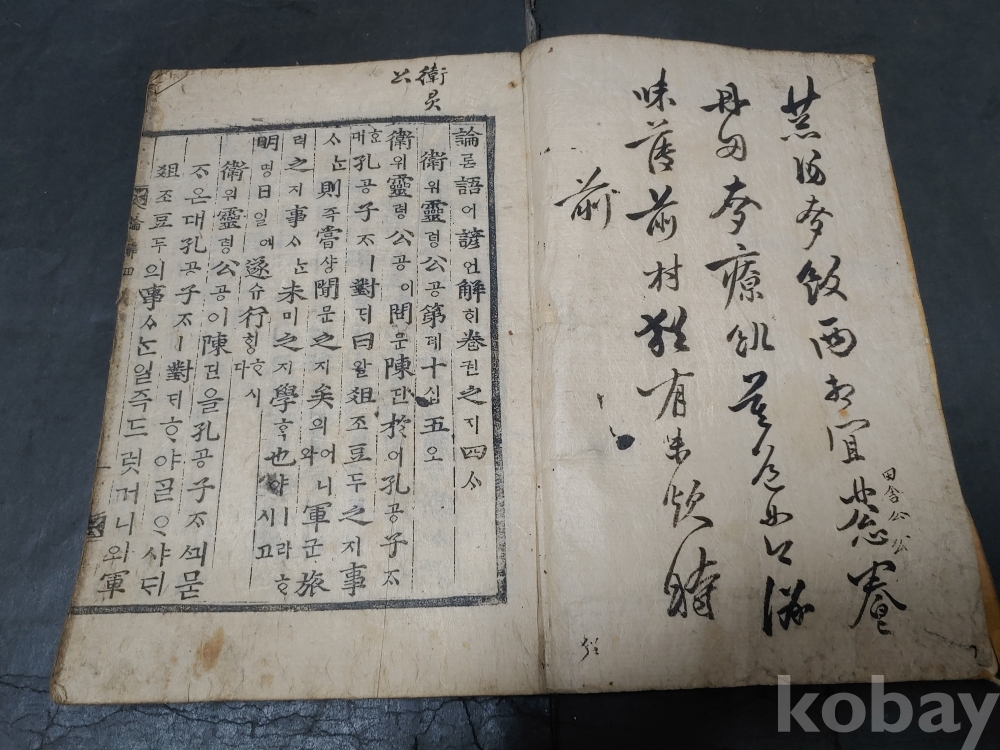 葱湯麥飯兩相宜葱養
田舍公
丹田麥療飢莫道此口滋
味薄前村猶有未炊時
前
猶
衛灵
公
論론語어諺언解ᄒᆡ卷권之지四ᄉᆞ
衛위靈령公공第뎨十십五오
衛위靈령公공이問문陳딘於어孔공子ᄌᆞ
ᄒᆞᆫ대孔공子ᄌᆞㅣ對ᄃᆡ曰왈俎조豆두之지事
ᄉᆞᄂᆞᆫ則즉嘗샹聞문之지矣의와어니軍군旅
려之지事ᄉᆞᄂᆞᆫ未미之지學ᄒᆞᆨ也야ㅣ라ᄒᆞ시고
明명日일애遂슈行ᄒᆡᆼᄒᆞ시다
衛위靈령公공이陳딘을孔공子ᄌᆞᄭᅴ묻
ᄌᆞ온대孔공子ᄌᆞㅣ對ᄃᆡᄒᆞ야ᄀᆞᆯᄋᆞ샤ᄃᆡ
俎조豆두의事ᄉᆞᄂᆞᆫ일즉드럿거니와軍
論解四
kobay